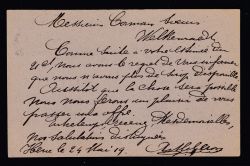 Messieurs Cannon Soeurs
Welkenraedt
Comme suite à votre estimée du
21 ct nous avons le regret de vous informer
que nous n'avons plus de disponible
Aussitôt que la chose sera possible
nous nous ferons un plaisir de vous
passer une offre.
recevez Mesdemoiselles,
nos salutations distinguées
le 24 Mai 19